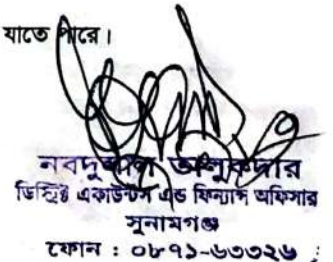 যাতে পারে।
নবদুলাল তালুকদার
ডিস্ট্রিক্ট একাউন্টস এন্ড ফিন্যান্স অফিসার
সুনামগঞ্জ
ফোন : ০৮৭১-৬৩৩২৬